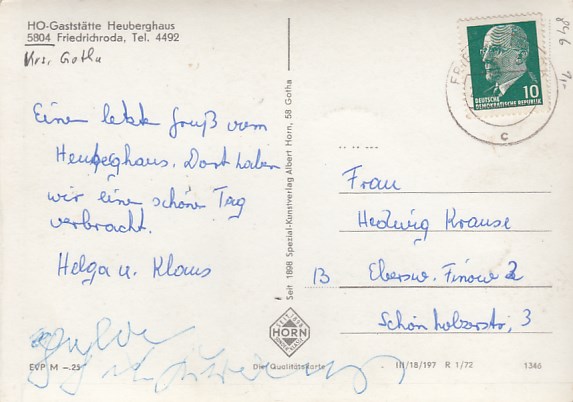 HO-Gaststätte Heuberghaus
5804 Friedrichroda, Tel. 4492
Krs. Gotha
Einen letzten Gruß vom
Heuberghaus. Dort haben
wir eine schöne Tag
verbracht.
Helga u. Klaus
EVP M –.25
Seit 1898 Spezial-Kunstverlag Albert Horn, 58 Gotha
HORN
Die Qualitätskarte
10
DEUTSCHE
DEMOKRATISCHE REPUBLIK
c
Frau
Hedwig Krause
B Ebersw. Finow 2
Schönholzerstr, 3
III/18/197 R 1/72 1346